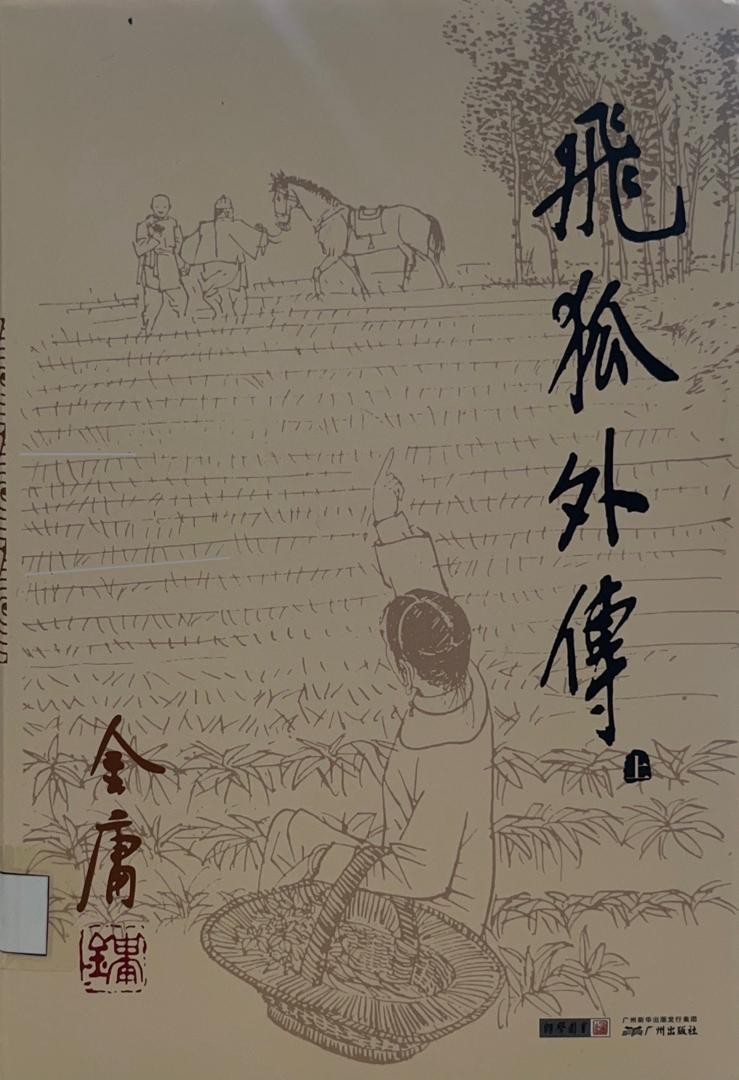 飛狐外傳
上
金庸
广州新华出版发行集团
广州出版社